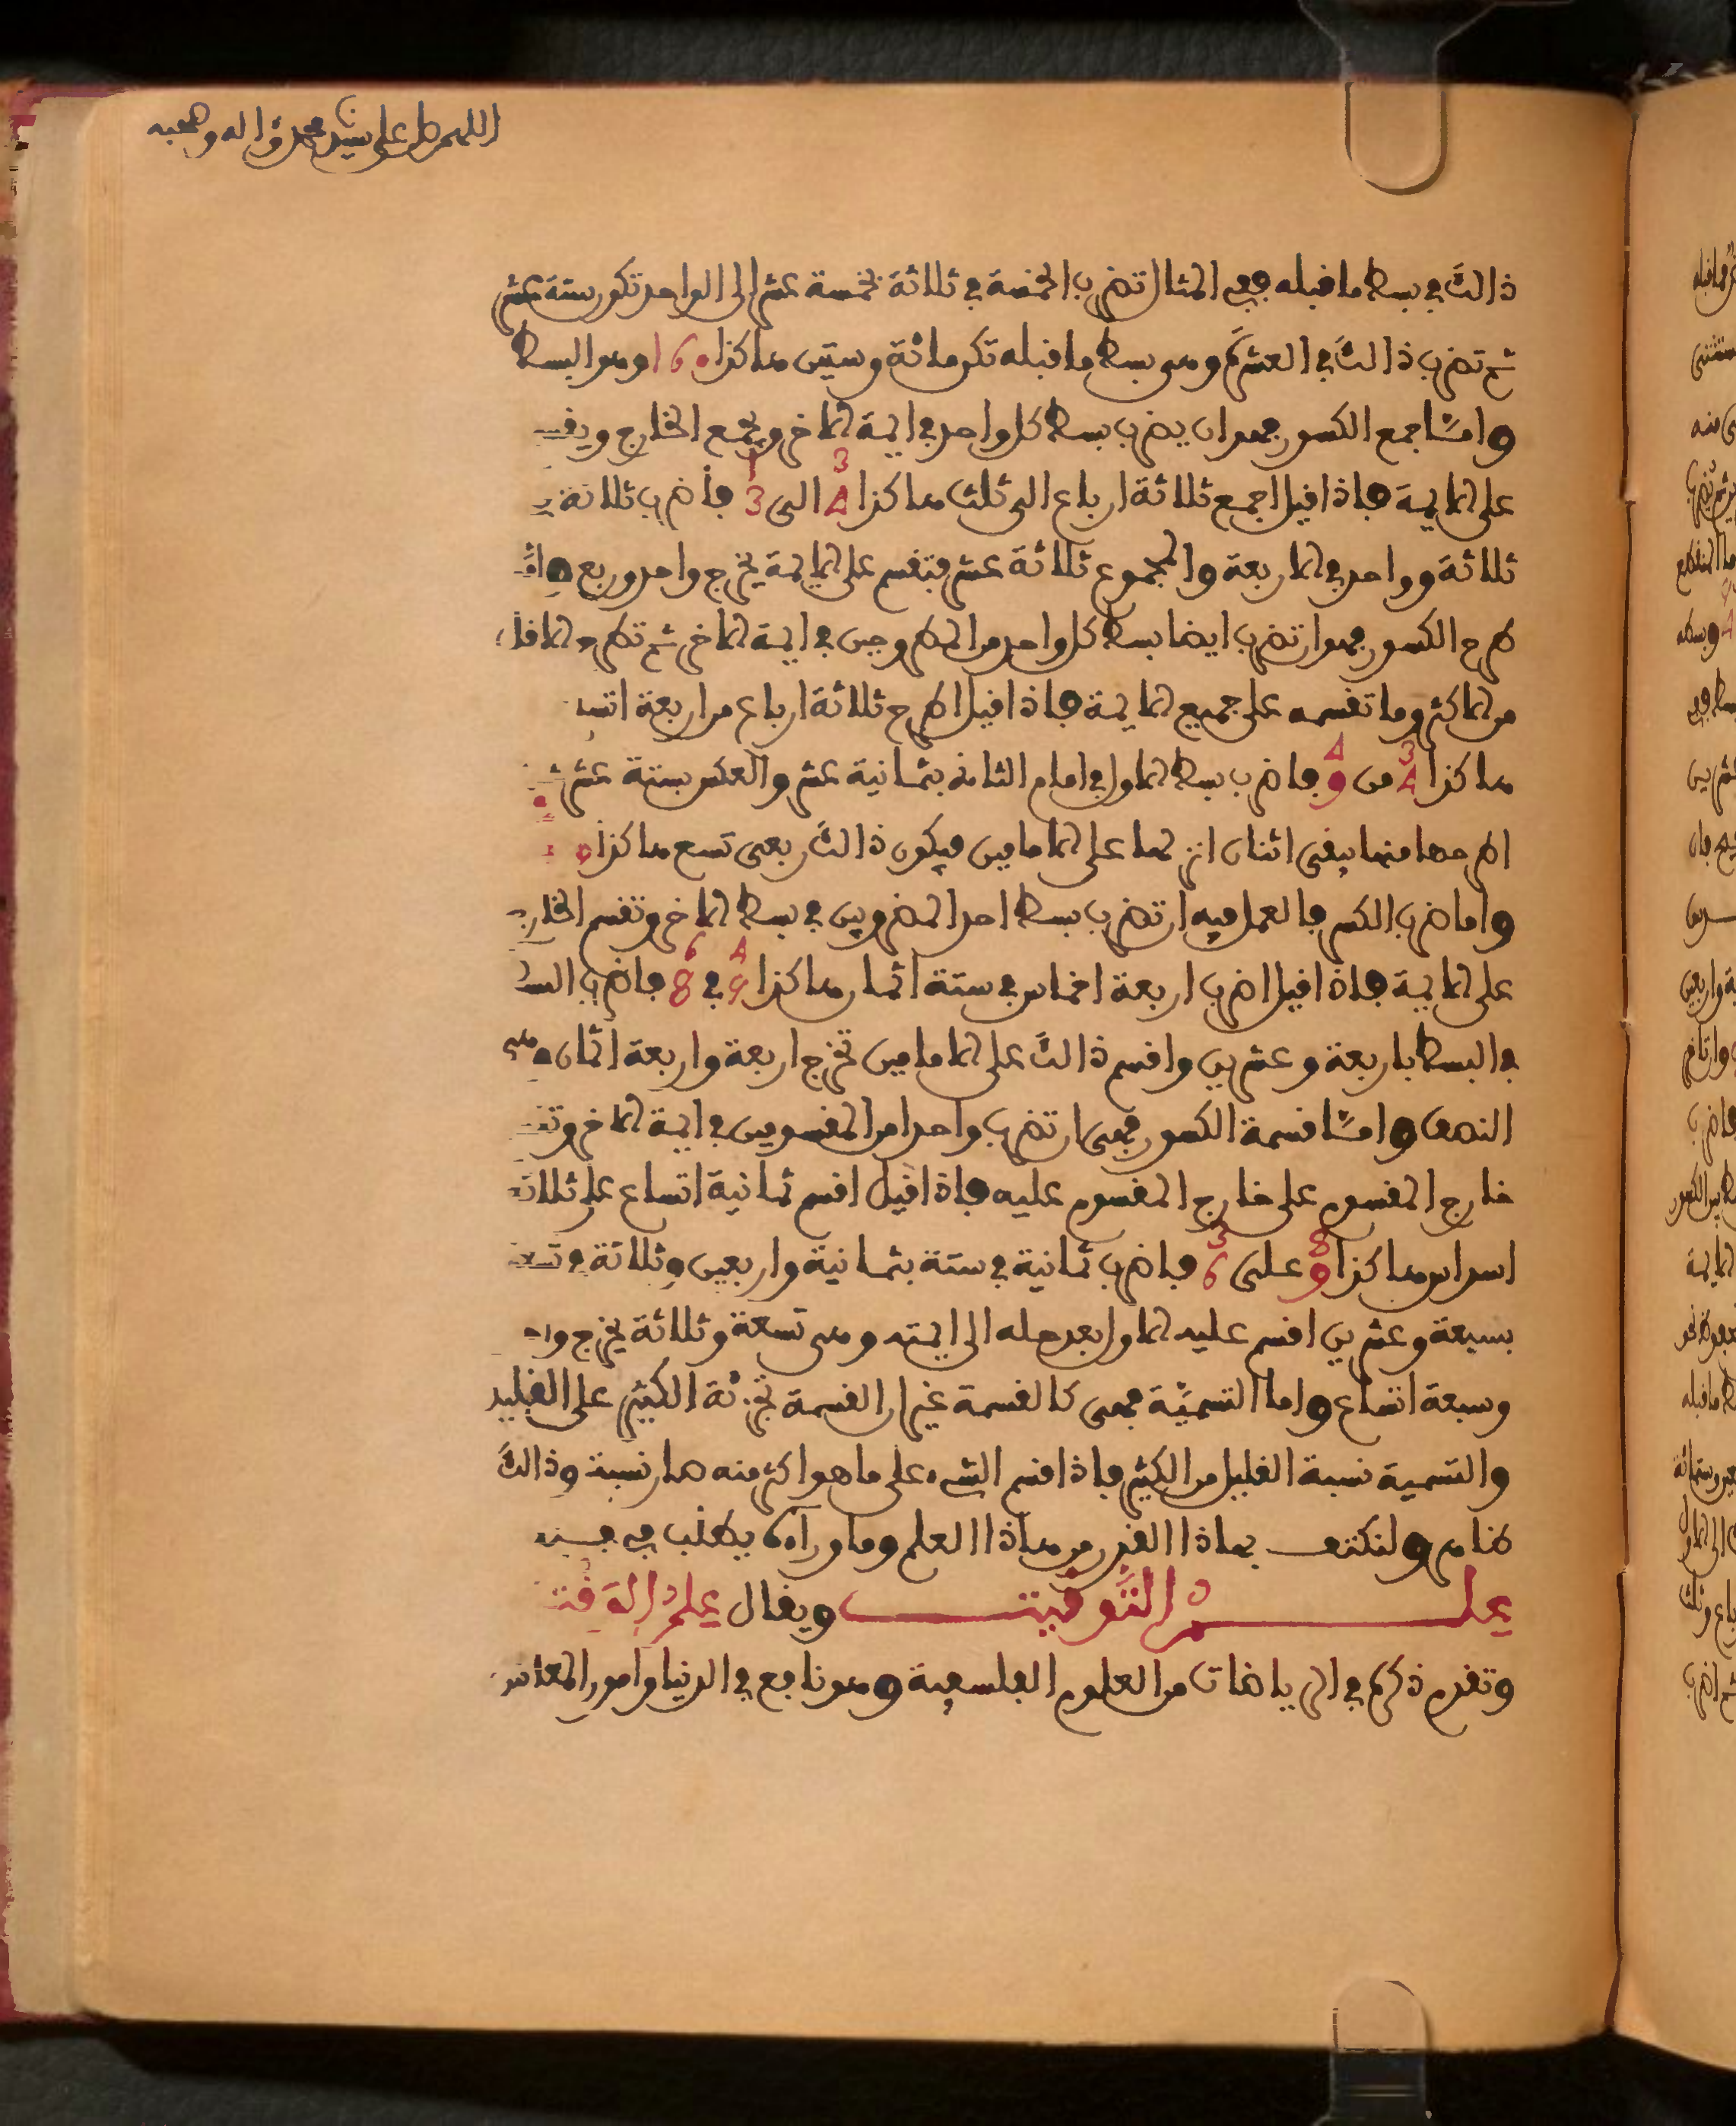 اللهم صل على سيدنا محمد وءاله وصحبه
ذالك في بسط ما قبله ففي المثال تضرب الخمسة في ثلاثة بخمسة عشر إلى الواحد تكون ستة عشر
ثم تضرب ذالك في العشرة وهو بسط ما قبله تكن مائة وستين هاكذا 160 وهو البسط
وامـّا جمع الكسور فهو ان يضرب بسط كل واحد في ايمة الاخر ويجمع الخارج
على الايمة فاذا قيل اجمع ثلاثة ارباع الى ثلث هاكذا 3/4 الى 1/3 فاضرب ثلاثة
ثلاثة وواحد في الاربعة والمجموع ثلاثة عشر فتقسم على الايمة يخرج واحد وربع
طرح الكسور فهو ان تضرب ايضا بسط كل واحد من المطروحين في ايمة الاخر ثم تطرح
من الاكثر وما تقسمه على جميع الايمة فاذا قيل اطرح ثلاثة ارباع من اربعة
هاكذا 3/4 من 4/9 فاضرب بسط الاول في امام الثاني بثمانية عشر والعكس بستة عشر
اطرحها منها يبقى اثنان انزلها على الامامين فيكون ذالك ربعي تسع هاكذا
واما ضرب الكسر فالعمل فيه ان تضرب بسط احد المضروبين في بسط الاخر وتقسم الخارج
على الايمة فاذا قيل اضرب اربعة اخماس في ستة اثمان هاكذا 4/5 في 6/8 فاضرب
في البسط باربعة وعشرين واقسم ذالك على الامامين تخرج اربعة واربعة اثمان وهي
النصف وامـّا قسمة الكسور فهي ان تضرب واحدا من المقسومين في ايمة الاخر
خارج المقسوم على خارج المقسوم عليه فاذا قيل اقسم ثمانية اتساع على ثلاثة
اسداس هاكذا 8/9 على 3/6 فاضرب ثمانية في ستة بثمانية واربعين وثلاثة
بسبعة وعشرين اقسم عليه الاول بعد حله الى ايمته وهي تسعة وثلاثة يخرج
وسبعة اتساع واما التسميّة فهي كالقسمة غير ان القسمة تجزئة الكثير على القليل
والتسمية نسبة القليل من الكثير فاذا اقسم الشيء على ما هو اكثر منه صار نسبة وذالك
ظاهر ولنكتف بهاذا القدر من هاذا العلم وما وراءه يطلب في
علم التَّوقيت ويقال علمُ الوَقت
وتقدم ذكره في الرياضات من العلوم الفلسفية وهو نافع في الدنيا وامور